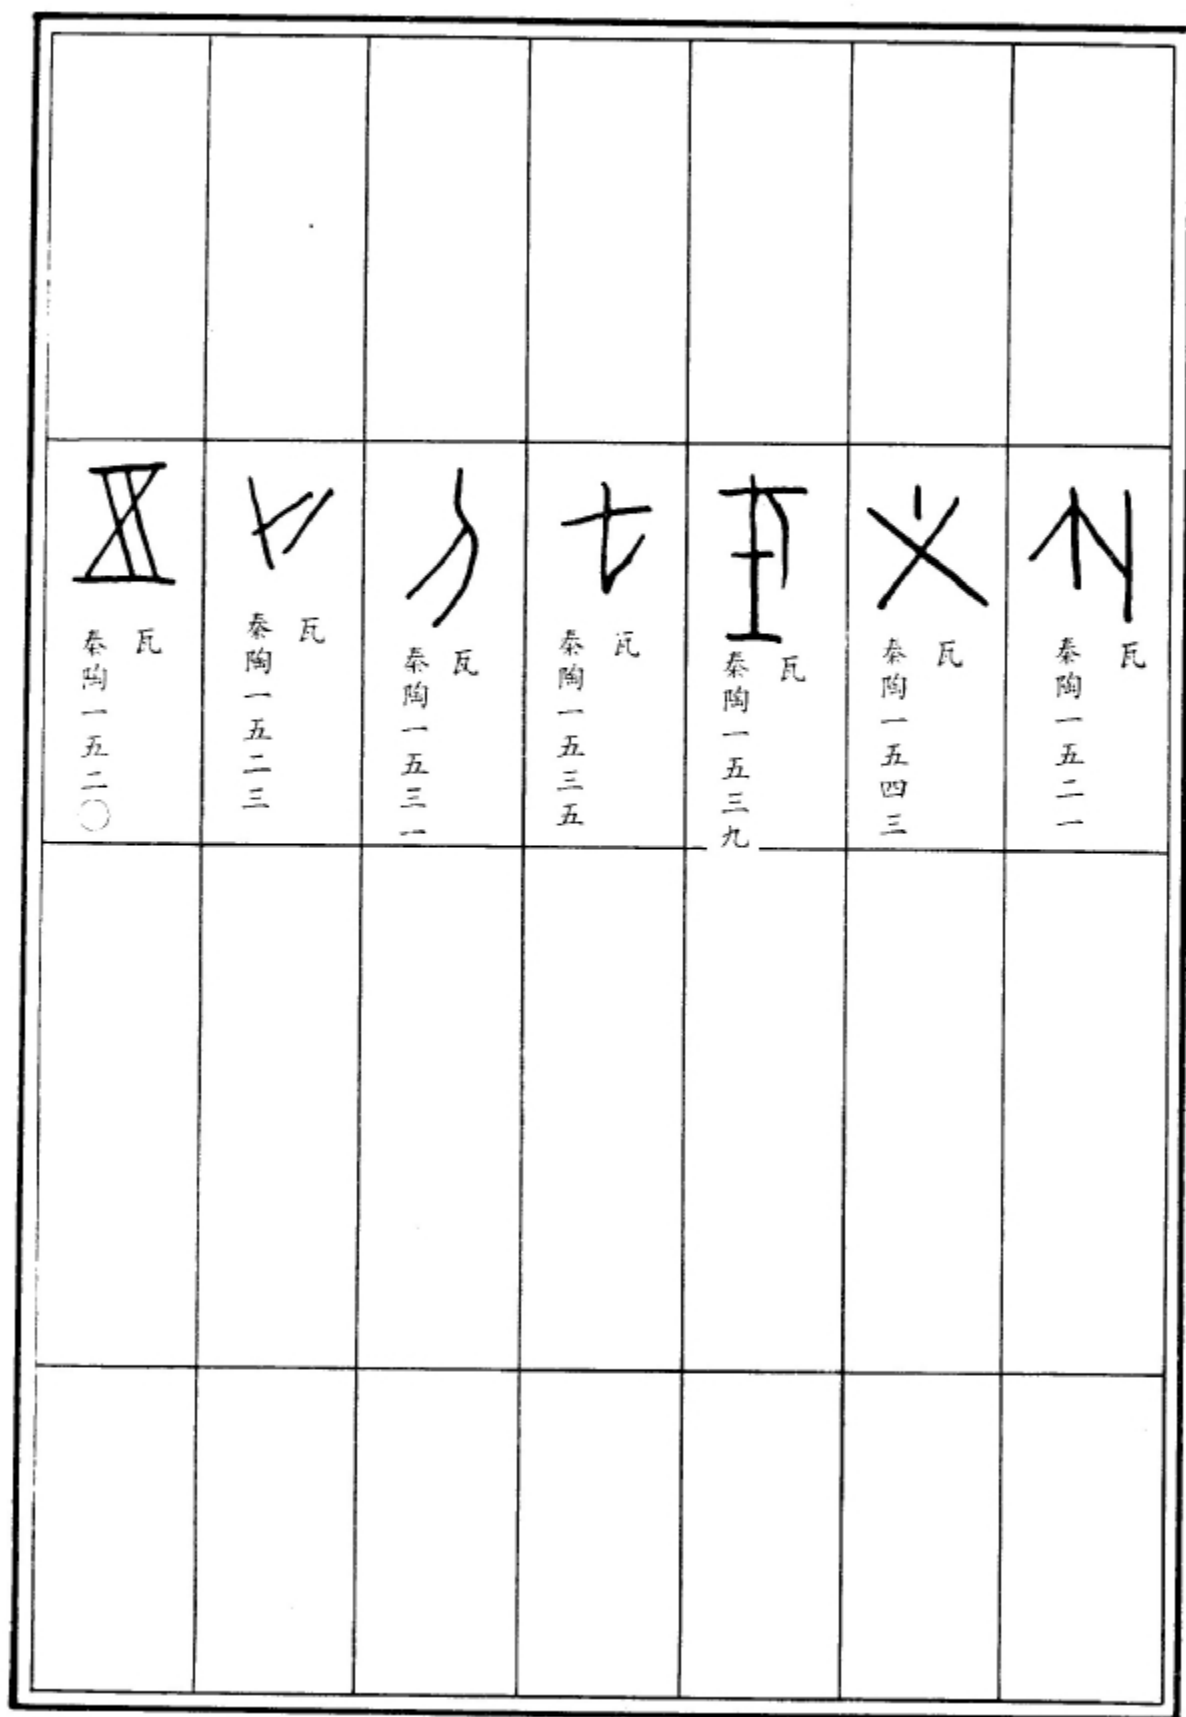 瓦
秦陶一五二一
瓦
秦陶一五四三
瓦
秦陶一五三九
瓦
秦陶一五三五
瓦
秦陶一五三一
瓦
秦陶一五二三
瓦
秦陶一五二〇